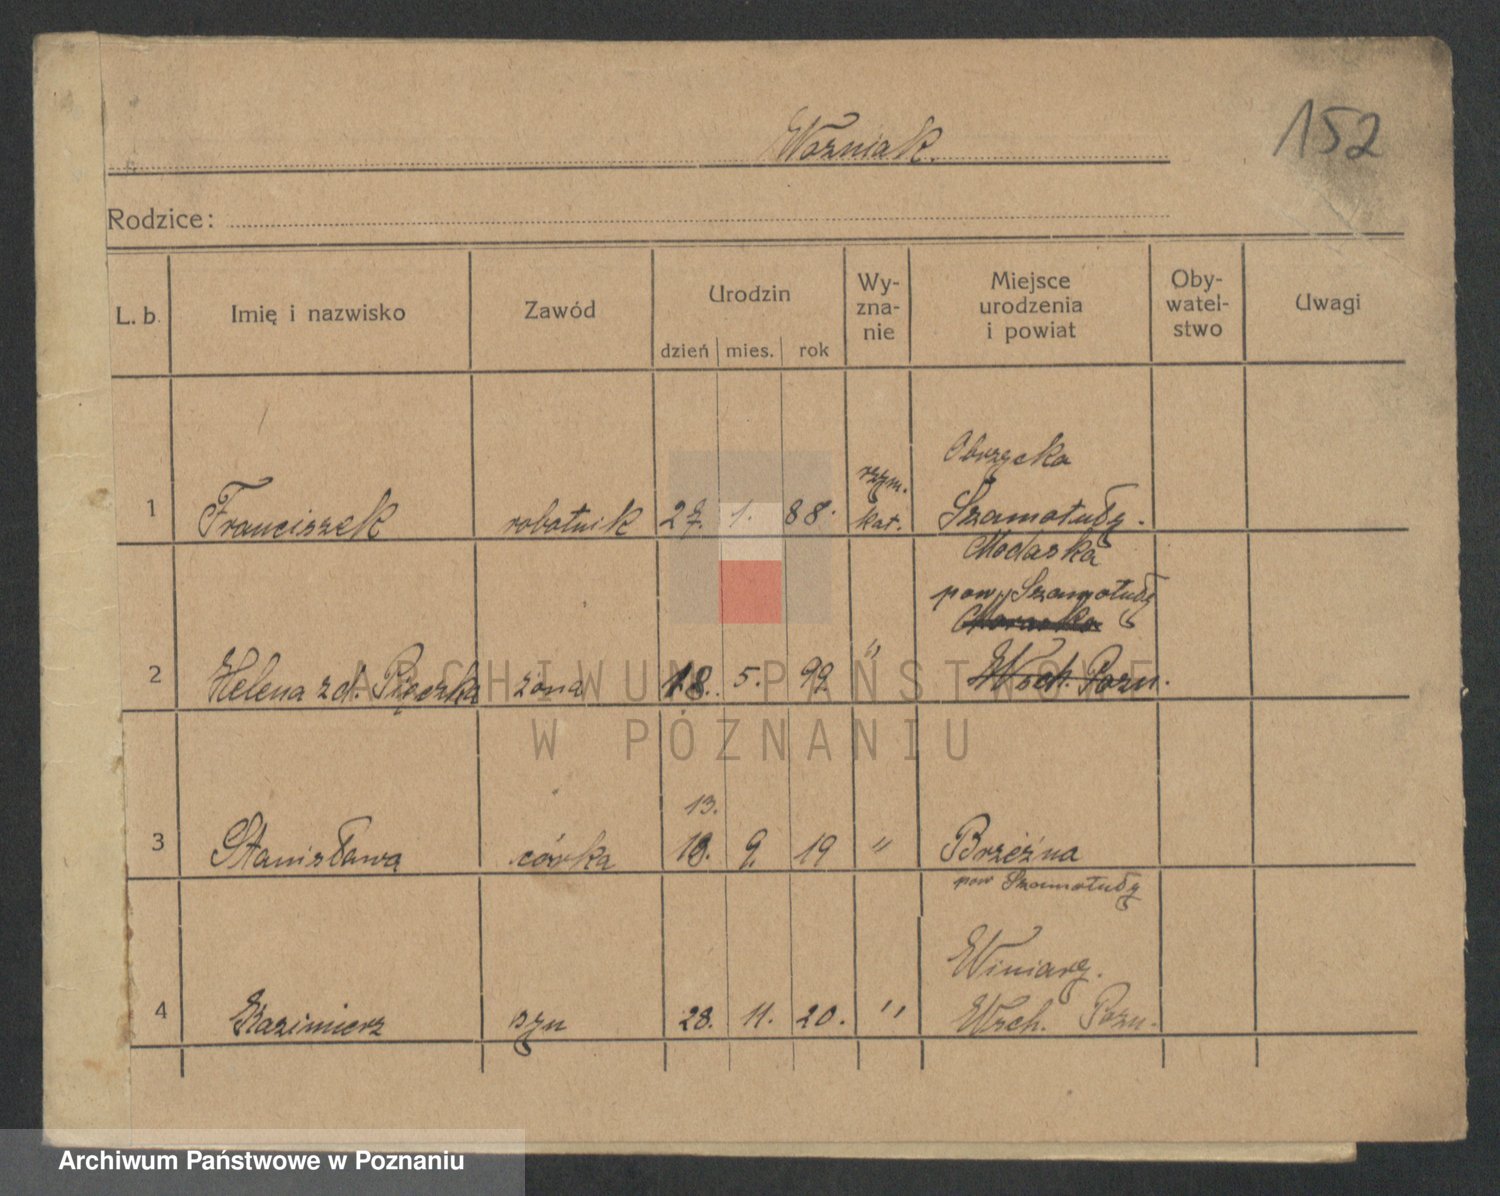 Woźniak.
152
Rodzice:
L. b.
Imię i nazwisko
Zawód
Urodzin
dzień mies. rok
Wy-
zna-
nie
Miejsce
urodzenia
i powiat
Oby-
watel-
stwo
Uwagi
1 Franciszek robotnik 27. 1. 88. rzym.
kat.
Obrzycko
Szamotuły.
2 Helena zd. Pięczka żona 18. 5. 99. "
pow. Szamotuły
Wsch. Pozn.
3 Stanisława córka 13. 9. 19 "
13.
Brzeźna
pow Szamotuły
4 Kazimierz syn 28. 11. 20. "
Winiary.
Wsch. Pozn.
ARCHIWUM PAŃSTWOWE
W POZNANIU
Archiwum Państwowe w Poznaniu